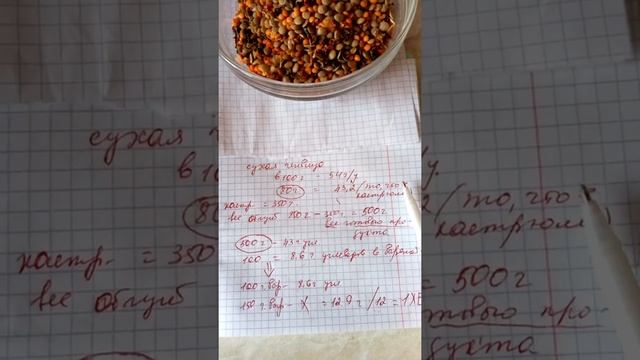 сухая чечевица
в 100 г = 54 г/у
80 г = 43,2 /то, что
кастр. = 350 г. кастрюли
вес общий 850 г - 350 г = 500 г
вес готового про-
дукта
500 г - 43 г угл
100 = 8.6 г углеводов в варёной
100 г. вар - 8.6 г угл
150 г. вар - X = 12.9 г /12 = 1 ХЕ